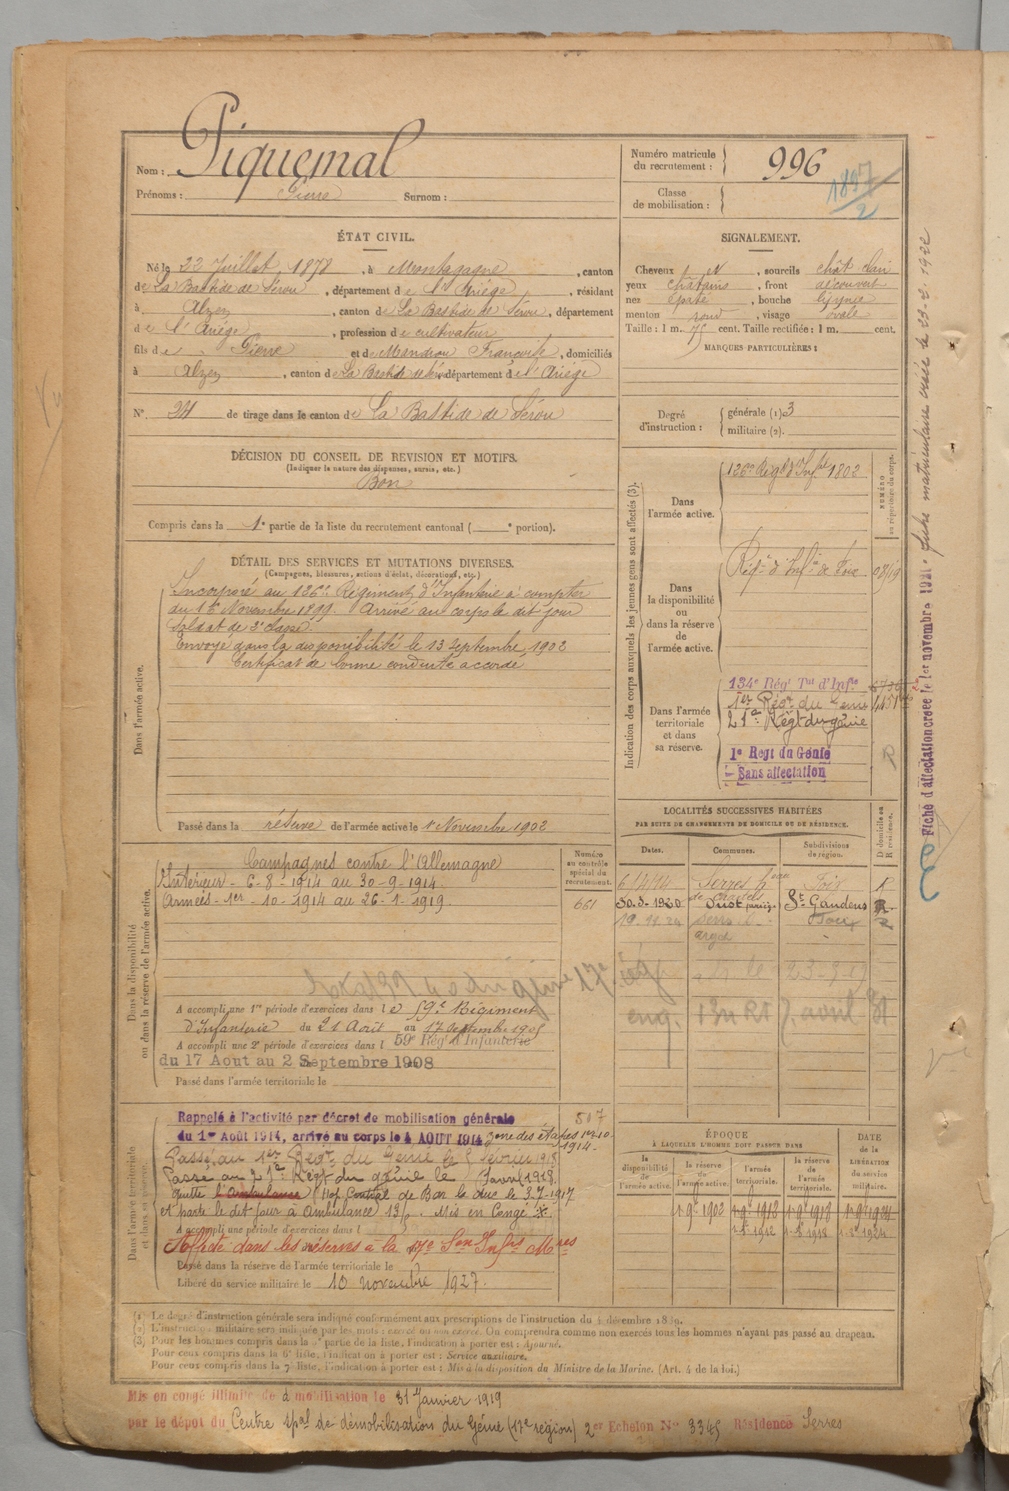 Nom : Piquemal
Prénoms : Pierre Surnom :
Numéro matricule du recrutement : 996
Classe de mobilisation :
1897
2
ÉTAT CIVIL.
Né le 22 Juillet 1878, à Montagagne, canton
de La Bastide de Sérou, département de l'Ariège, résidant
à Alzen, canton de La Bastide de Sérou, département
de l'Ariège, profession de cultivateur
fils de Pierre et de Mandrou Françoise, domiciliés
à Alzen, canton de La Bastide de Sérou département de l'Ariège
N° 24 de tirage dans le canton de La Bastide de Sérou
SIGNALEMENT.
Cheveux et, sourcils chât clair
yeux châtains, front découvert
nez épaté, bouche moyenne
menton rond, visage ovale
Taille : 1 m. 75 cent. Taille rectifiée : 1 m. cent.
MARQUES PARTICULIÈRES :
Degré d'instruction : générale (1) 3
militaire (2).
DÉCISION DU CONSEIL DE REVISION ET MOTIFS.
(Indiquer la nature des dispenses, sursis, etc.)
Bon
Compris dans la 1e partie de la liste du recrutement cantonal ( e portion).
DÉTAIL DES SERVICES ET MUTATIONS DIVERSES.
(Campagnes, blessures, actions d'éclat, décorations, etc.)
Dans l'armée active.
Incorporé au 126e Régiment d'Infanterie à compter
du 16 Novembre 1899. Arrivé au corps le dit jour
Soldat de 2e classe.
Envoyé dans la disponibilité le 13 Septembre 1902
Certificat de bonne conduite accordé
Passé dans la réserve de l'armée active le 1er Novembre 1902
Indication des corps auxquels les jeunes gens sont affectés (3).
NUMÉRO au répertoire du corps.
Dans l'armée active.
126e Régt d'Infie 1802
Dans la disponibilité ou dans la réserve de l'armée active.
Régt d'Infie de Foix
Dans l'armée territoriale et dans sa réserve.
134e Régt Tal d'Infie
1er Régt du Génie
21e Régt du génie
1e Régt du Génie
Sans affectation
R
LOCALITÉS SUCCESSIVES HABITÉES
PAR SUITE DE CHANGEMENTS DE DOMICILE OU DE RÉSIDENCE.
D domicile ou R résidence.
Dates. Communes. Subdivisions de région.
6/4/14 Serres Foix R
30.3.1920 St Gaudens R
19.12.24 Serres argot Foix R
Dans la disponibilité ou dans la réserve de l'armée active.
Numéro au contrôle spécial du recrutement.
661
Campagnes contre l'Allemagne
Intérieur - 6-8-1914 au 30-9-1914.
Armées - 1er-10-1914 au 26-1-1919.
A accompli une 1re période d'exercices dans le 59e Régiment
d'Infanterie du 21 Août au 17 Septembre 1905
A accompli une 2e période d'exercices dans l 59e Régt d'Infanterie
du 17 Aout au 2 Septembre 1908
Passé dans l'armée territoriale le
Dans l'armée territoriale et dans sa réserve.
507
Rappelé à l'activité par décret de mobilisation générale
du 1er Août 1914, arrivé au corps le 4 AOUT 1914 zone des étapes 1er-10-1914
Passé au 1er Régt du Génie le 5 février 1918
Passé au 21e Régt du génie le 1918.
quitte l'Ambulance Hop Central de Bar le duc le 3.7.1917
et parte le dit jour à Ambulance 13/. Mis en Congé *
A accompli une période d'exercices dans l
Affecté dans les réserves à la 17e Son Infrs Mres
Passé dans la réserve de l'armée territoriale le
Libéré du service militaire le 10 novembre 1927.
ÉPOQUE
À LAQUELLE L'HOMME DOIT PASSER DANS
DATE DE LA LIBÉRATION DU SERVICE MILITAIRE.
la disponibilité de l'armée active. la réserve de l'armée active. l'armée territoriale. la réserve de l'armée territoriale.
1-9bre 1902 1-9bre 1912 1-9bre 1918 1-9bre 1924
(1) Le degré d'instruction générale sera indiqué conformément aux prescriptions de l'instruction du 4 décembre 1889.
(2) L'instruction militaire sera indiquée par les mots : exercé ou non exercé. On comprendra comme non exercés tous les hommes n'ayant pas passé au drapeau.
(3) Pour les hommes compris dans la 2e partie de la liste, l'indication à porter est : Ajourné.
Pour ceux compris dans la 6e liste, l'indication à porter est : Service auxiliaire.
Pour ceux compris dans la 7e liste, l'indication à porter est : Mis à la disposition du Ministre de la Marine. (Art. 4 de la loi.)
Mis en congé illimité de démobilisation le 31 Janvier 1919
par le dépôt du Centre spal de démobilisation du Génie (17e région) 2er Echelon No 3345 Résidence Serres
Fiche d'affectation créée le 1er novembre 1921. fiche matriculaire créée le 23-2-1922